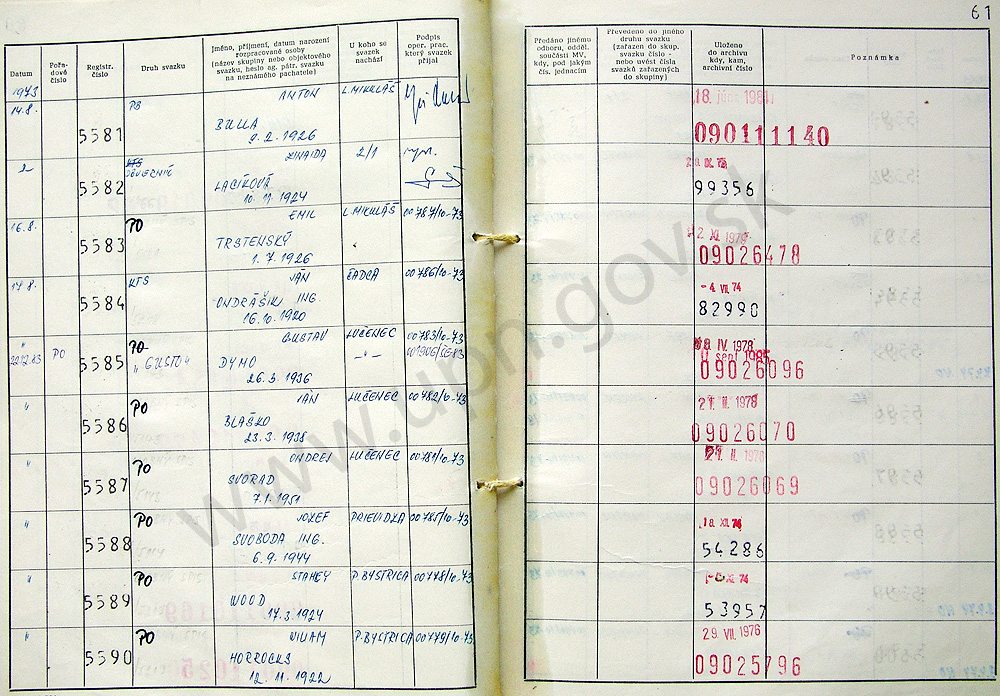 61
Datum
Pořa-
dové
číslo
Registr.
číslo
Druh svazku
Jméno, příjmení, datum narození
rozpracované osoby
(název skupiny nebo objektového
svazku, heslo ag. pátr. svazku
na neznámého pachatele)
U koho se
svazek
nachází
Podpis
oper. prac.
který svazek
přijal
Předáno jinému
odboru, odděl.
součásti MV,
kdy, pod jakým
čís. jednacím
Převedeno do jiného
druhu svazku
(zařazen do skup.
svazku číslo -
nebo uvést čísla
svazků zařazených
do skupiny)
Uloženo
do archivu
kdy, kam,
archivní číslo
Poznámka
1973
14.8. 5581 PB ANTON L. MIKULÁŠ
BULLA
9.2.1926
090111140
5582 KTS
DŮVERNÍK ZINAIDA 2/1
LACÍKOVÁ
10.11.1924
99356
16.8. 5583 PO EMIL L. MIKULÁŠ 00787/10-73
TRSTENSKÝ
1.7.1926
09026478
14.8. 5584 KTS JÁN ČADCA 00786/10-73
ONDRÁŠIK ING.
16.10.1920
-4. VII. 74
82990
" 5585 PO GUSTAV LUČENEC 00783/10-73
PO "GUSTO" DYMO -"-
26.3.1936
IV. 1978
09026096
" 5586 PO JÁN LUČENEC 00782/10-73
BLAŠKO
23.3.1938
21. II. 1978
09026070
" 5587 PO ONDREJ LUČENEC 00781/10-73
SVORAD
7.1.1951
09026069
" 5588 PO JOZEF PRIEVIDZA 00785/10-73
SVOBODA ING.
6.9.1944
18. XII. 74
54286
" 5589 PO STAHEY P. BYSTRICA 00778/10-73
WOOD
17.3.1924
53957
" 5590 PO VILIAM P. BYSTRICA 00779/10-73
HORROCKS
12.11.1922
29. VII. 1976
09025796
www.upn.gov.sk